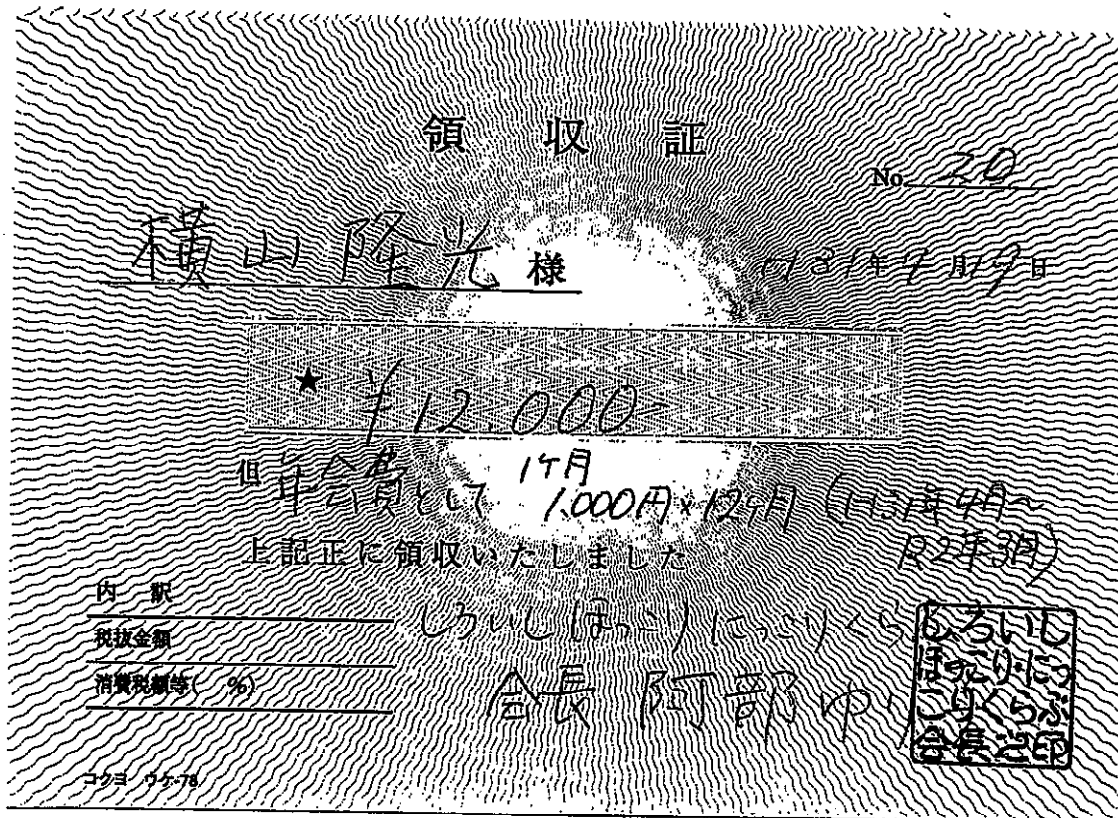 領収証
No. 20
横山隆光 様
H31年4月19日
★ ¥12,000-
但 年会費として 1ケ月 1,000円×12ヶ月 (H31年4月～
R2年3月)
上記正に領収いたしました
内訳
税抜金額
消費税額等( %)
しろいしほっこりにっこりくら
会長 阿部ゆり
しろいし
ほっこり・にっ
こりくらぶ
会長之印
コクヨ ウケ-78